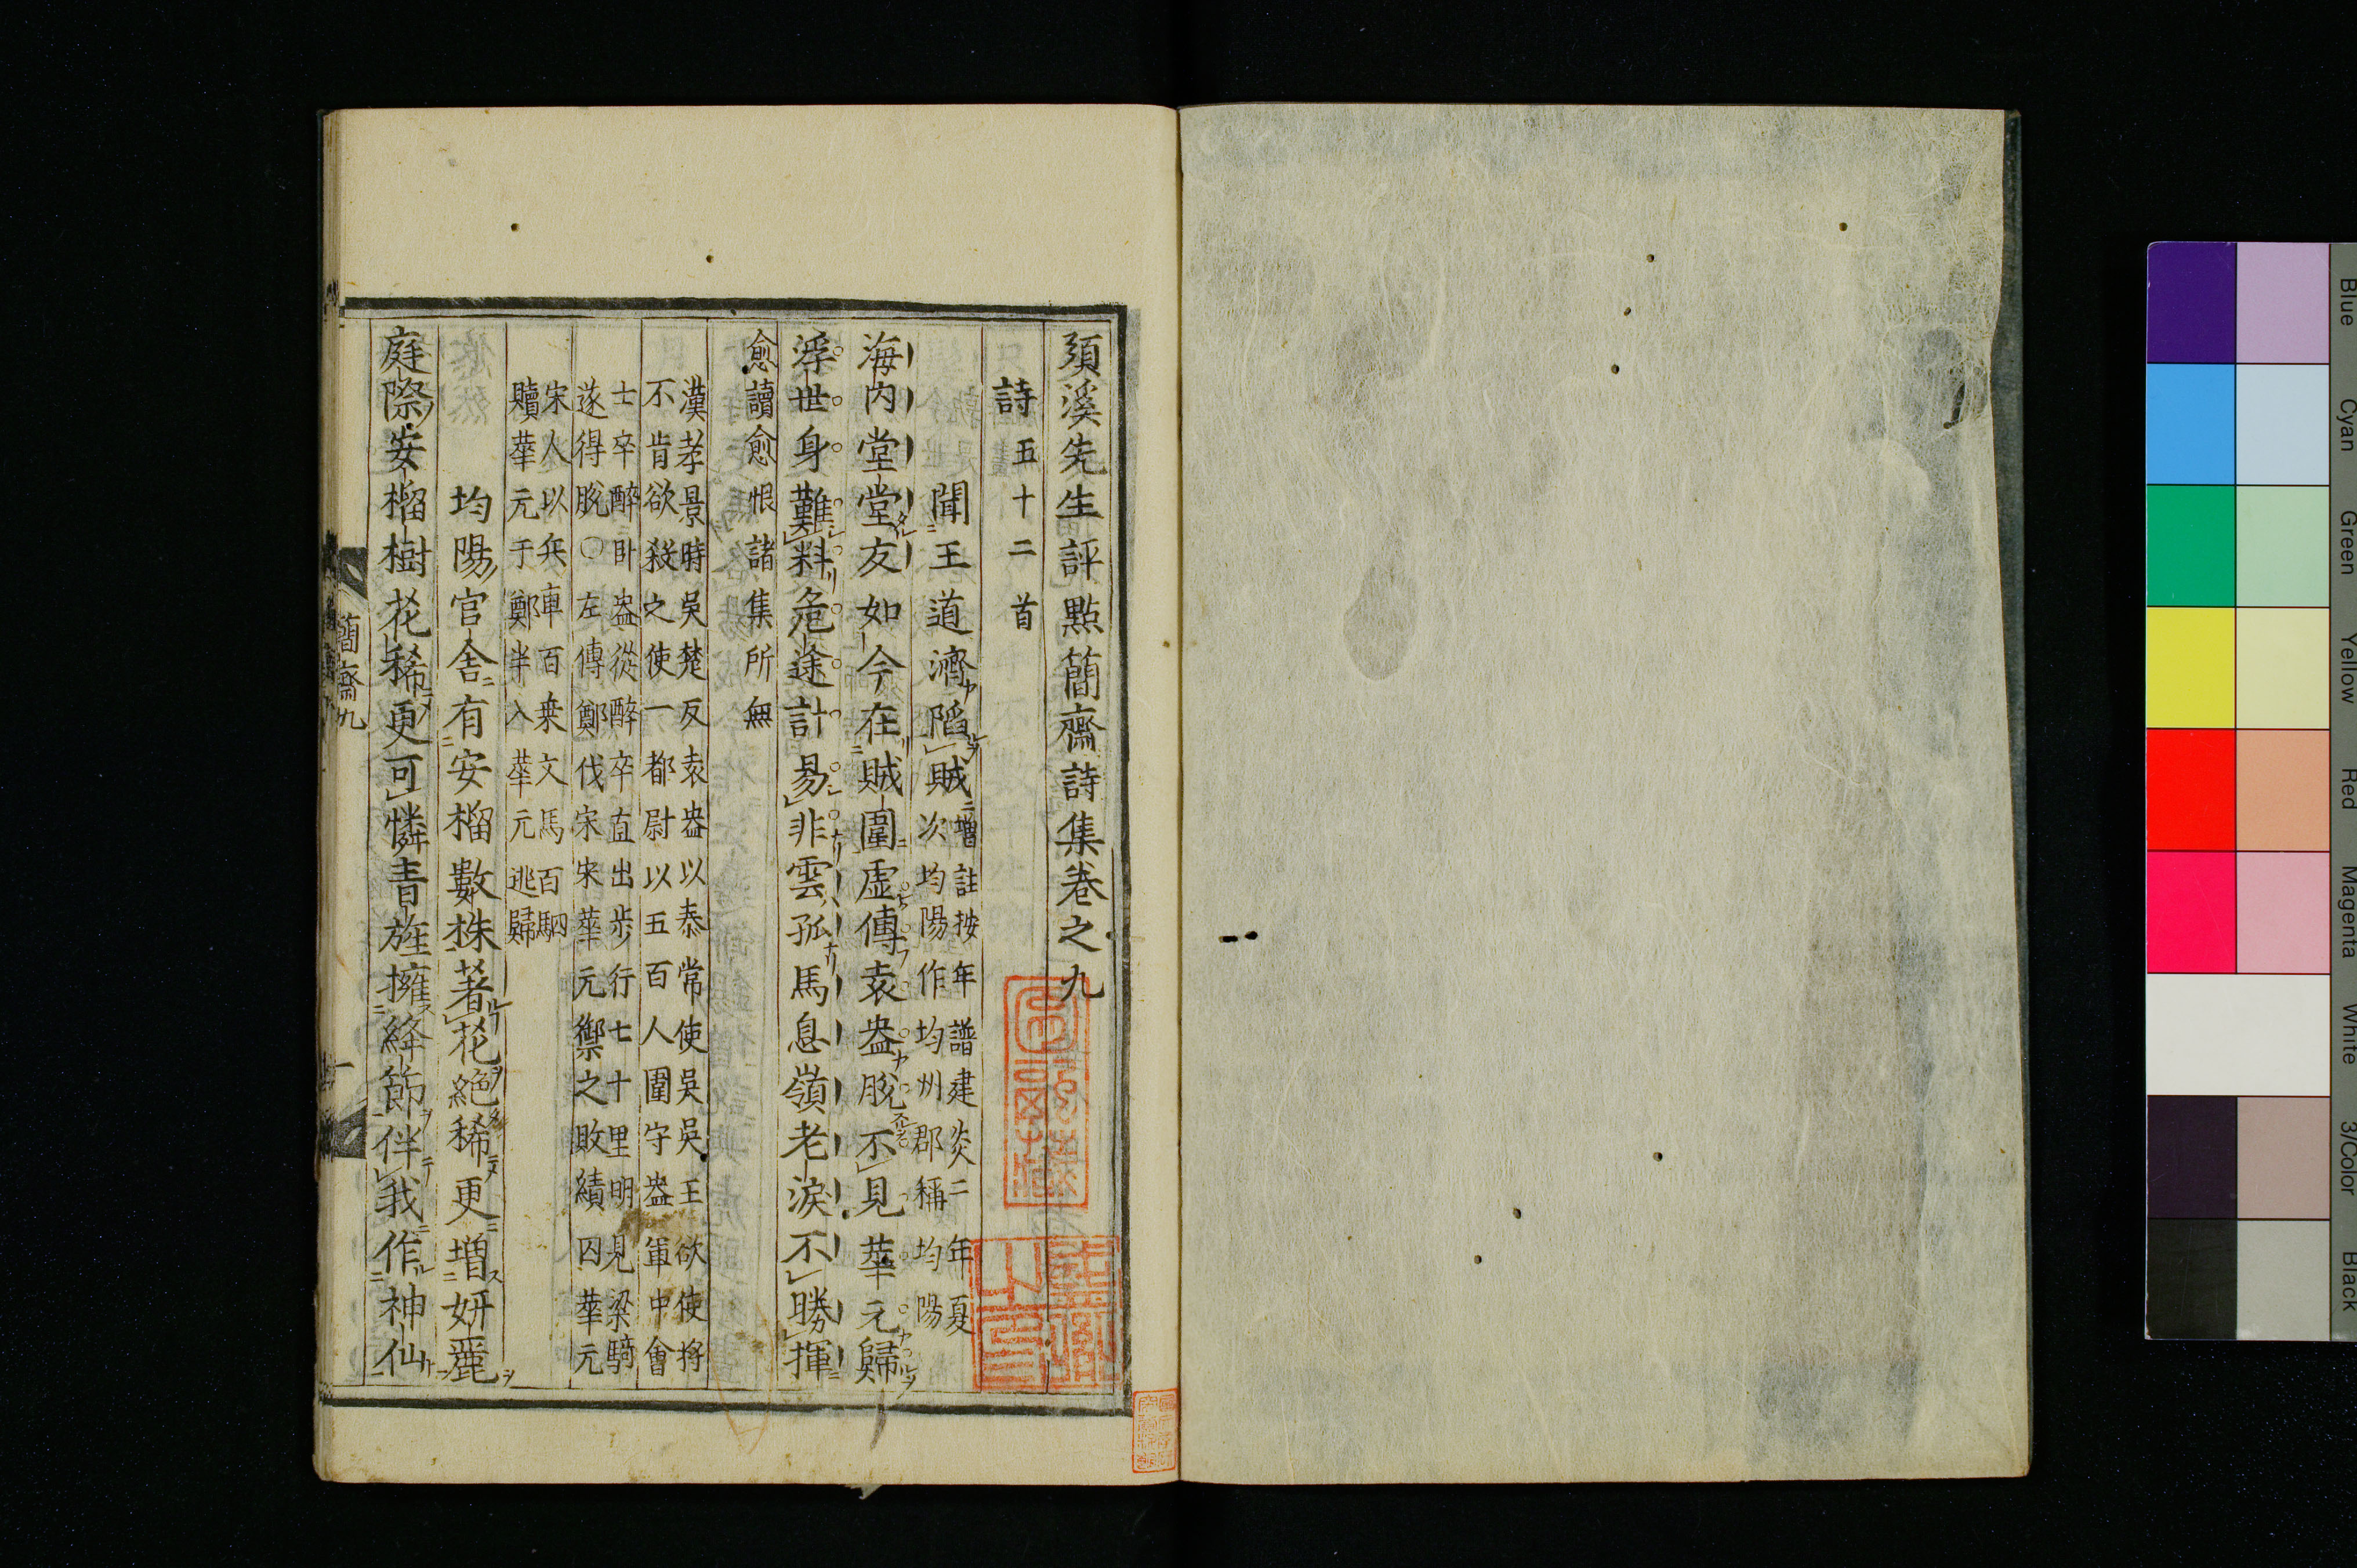 須溪先生評點簡齋詩集卷之九
詩五十二首
聞王道濟陷賊
增註按年譜建炎二年夏
次均陽作均州郡稱均陽
海内堂堂友如今在賊圍虛傳袁盎脫不見華元歸
浮世身難料危途計易非雲孤馬息嶺老淚不勝揮
愈讀愈恨諸集所無
漢孝景時吳楚反袁盎以泰常使吳吳王欲使将
不肯欲殺之使一都尉以五百人圍守盎軍中會
士卒醉卧盎從醉卒直出步行七十里明見梁騎
遂得脫〇左傳鄭伐宋宋華元禦之敗績囚華元
宋人以兵車百乗文馬百駟
贖華元于鄭半入華元逃歸
均陽官舍有安榴數株著花絶稀更增妍麗
庭際安榴樹花稀更可憐青旌擁絳節伴我作神仙
簡齋九
一
Blue
Cyan
Green
Yellow
Red
Magenta
White
3/Color
Black